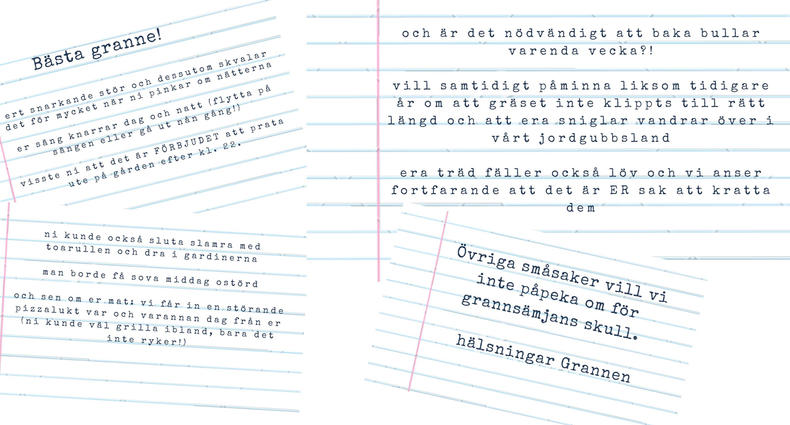 Bästa granne!
ert snarkande stör och dessutom skvalar
det för mycket när ni pinkar om nätterna
er säng knarrar dag och natt (flytta på
sängen eller gå ut nån gång!)
visste ni att det är FÖRBJUDET att prata
ute på gården efter kl. 22.
ni kunde också sluta slamra med
toarullen och dra i gardinerna
man borde få sova middag ostörd
och sen om er mat: vi får in en störande
pizzalukt var och varannan dag från er
(ni kunde väl grilla ibland, bara det
inte ryker!)
och är det nödvändigt att baka bullar
varenda vecka?!
vill samtidigt påminna liksom tidigare
år om att gräset inte klippts till rätt
längd och att era sniglar vandrar över i
vårt jordgubbsland
era träd fäller också löv och vi anser
fortfarande att det är ER sak att kratta
dem
Övriga småsaker vill vi
inte påpeka om för
grannsämjans skull.
hälsningar Grannen